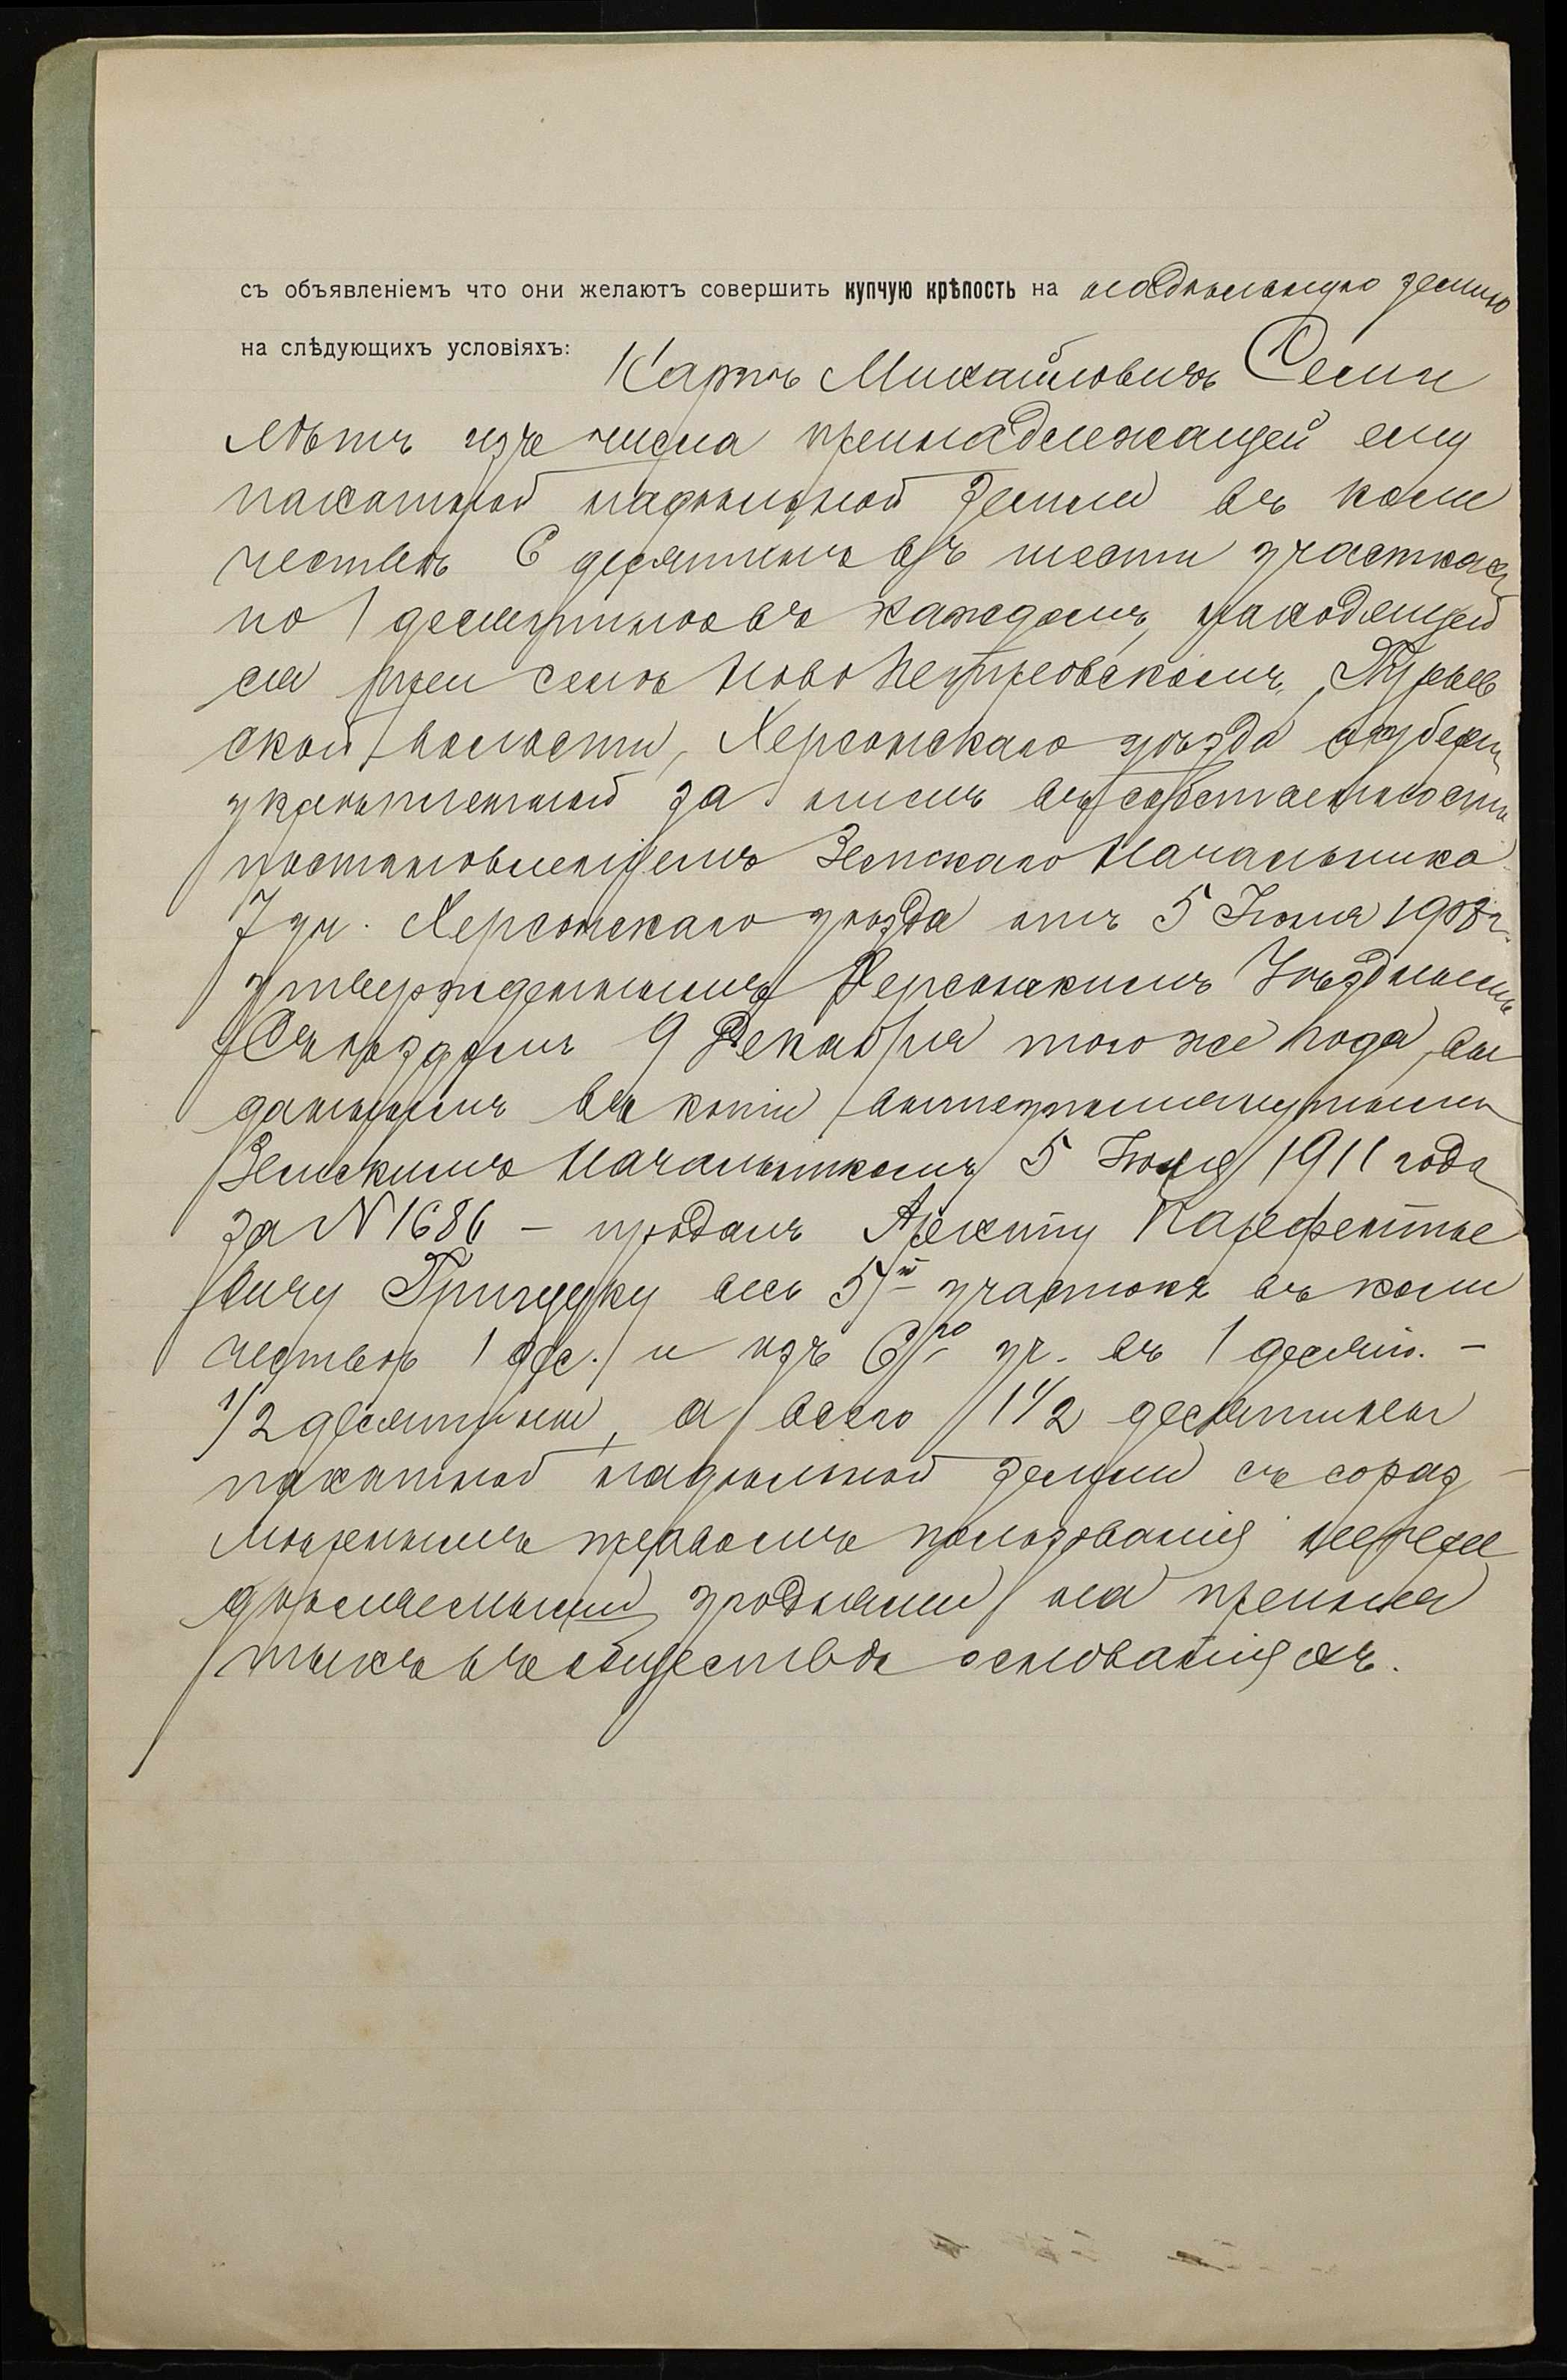 съ объявленіемъ что они желаютъ совершить купчую крѣпость на надѣльную землю
на слѣдующихъ условіяхъ:
Карпъ Михайловичъ Семи
лѣтъ изъ числа принадлежащей ему
пахатной надѣльной земли въ коли
чествѣ 6 десятинъ въ шести участкахъ
по 1 десятинѣ въ каждомъ, находящей
ся при селѣ Ново Петровскомъ,
ской волости, Херсонскаго уѣзда и губерн
укрѣпленной за нимъ въ собственность
постановленіемъ Земскаго Начальника
7 уч. Херсонскаго уѣзда отъ 5 Іюня 1908 г.
утвержденнымъ Херсонскимъ Уѣзднымъ
Съѣздомъ 9 Декабря того же года, вы
даннымъ въ копіи вышеупомянутымъ
Земскимъ Начальникомъ 5 Іюля 1911 года
за N 1686 – продалъ Арекиту Парфентье
вичу Грищуку весь 5й участокъ въ коли
чествѣ 1 дес. и изъ 6го уч. въ 1 десят. –
1/2 десятины, а всего 1 1/2 десятины
пахатной надѣльной земли съ сораз
мѣрнымъ правомъ пользованія непере
дѣляемыми угодьями на приня
тыхъ въ обществѣ основаніяхъ.